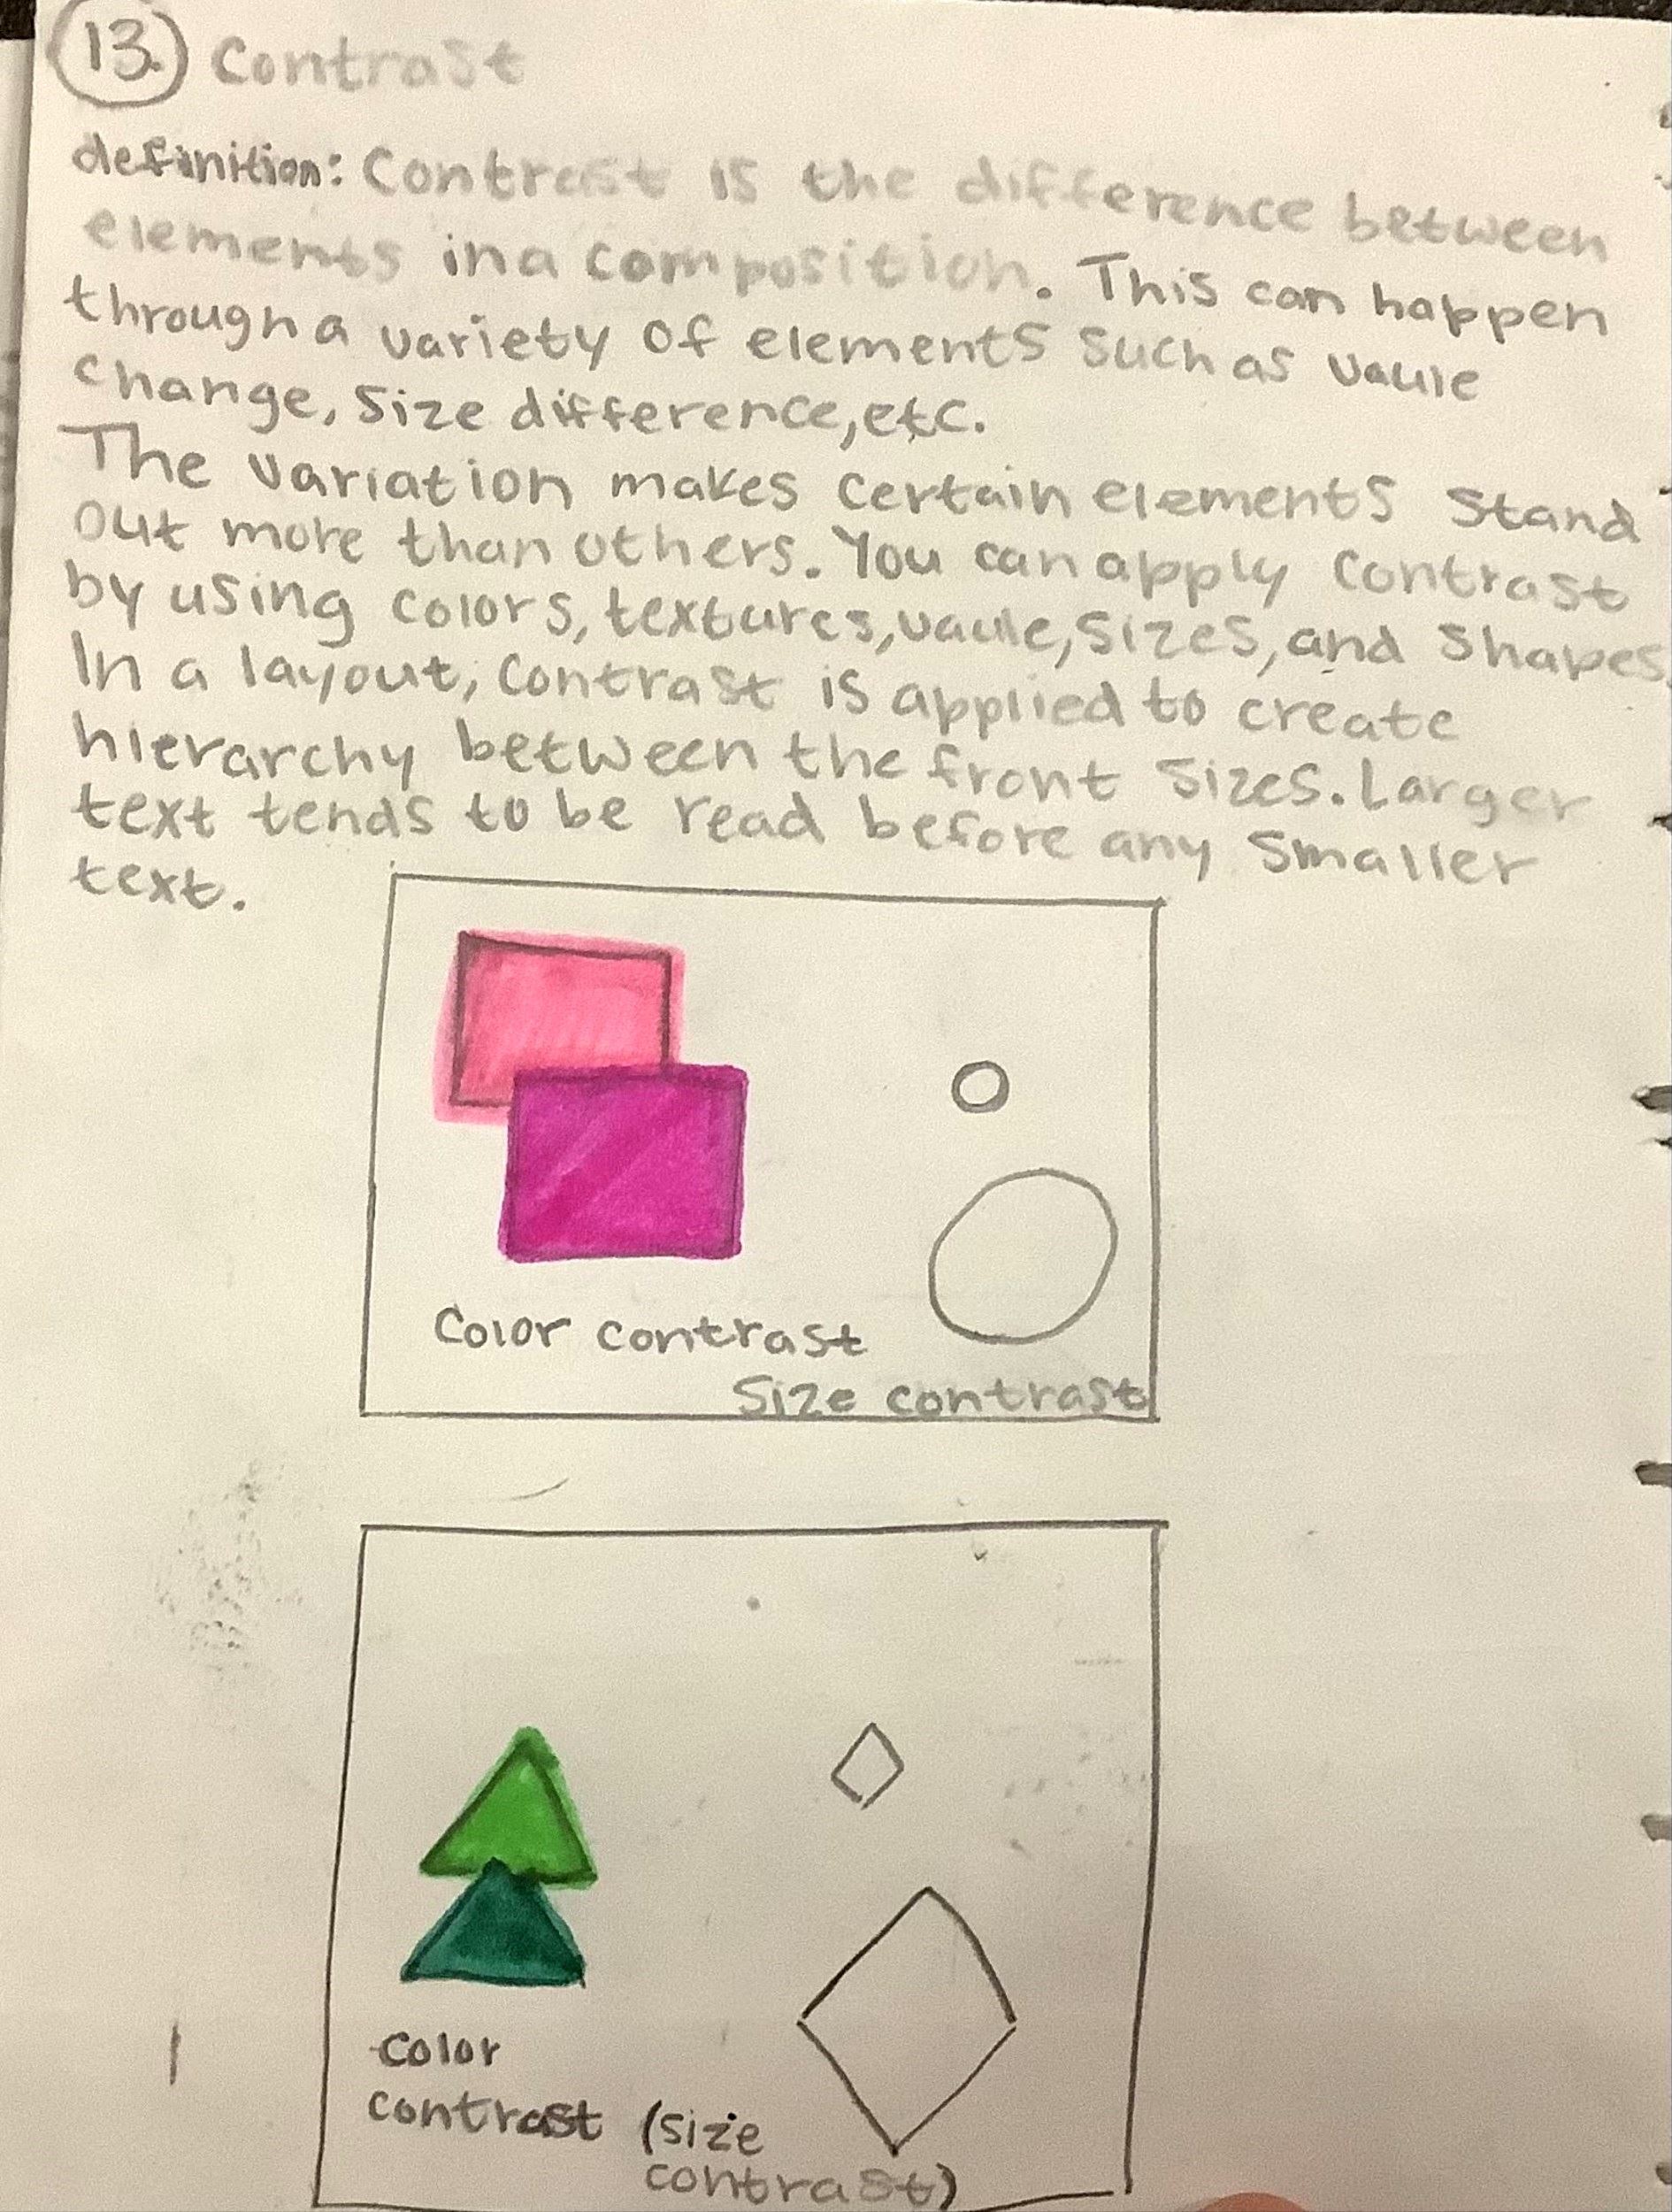 13. Contrast
definition: Contrast is the difference between
elements in a composition. This can happen
through a variety of elements such as vaule
change, size difference, etc.
The variation makes certain elements stand
out more than others. You can apply contrast
by using colors, textures, vaule, sizes, and shapes.
In a layout, contrast is applied to create
hierarchy between the front sizes. Larger
text tends to be read before any smaller
text.
Color contrast
Size contrast
Color
contrast (size
contrast)